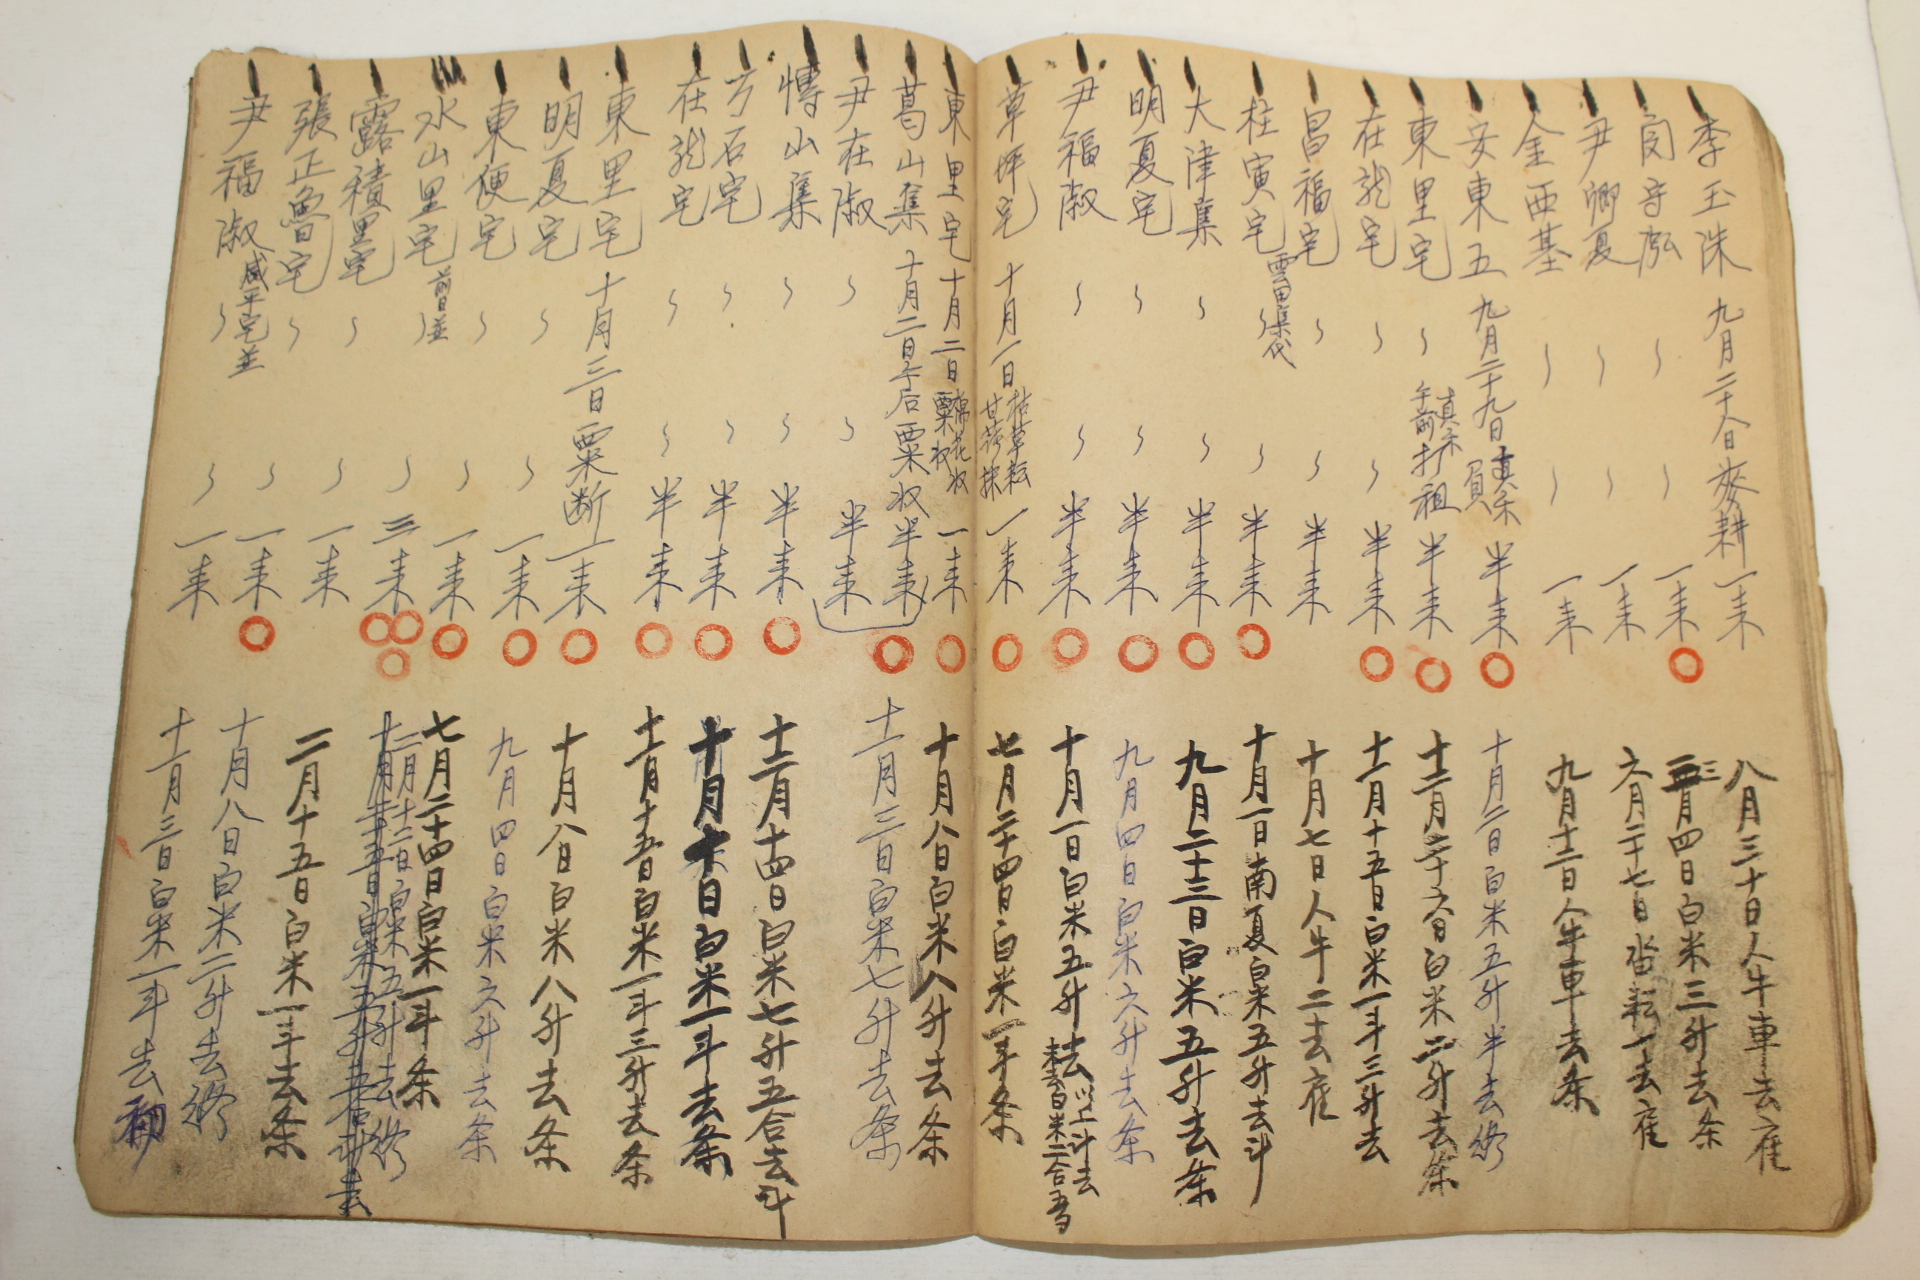 李玉洙 九月二十八日 麥耕 一来 八月三十日人牛車去雇
閔守泓 〻 〻 一来 三月四日白米三升去条
尹卿夏 〻 〻 一来 六月二十七日畓耘一去雇
金西基 〻 〻 一来 九月十二日人牛車去条
安東五 九月二十九日 負 半来 十月二日白米五升半去終
東里宅 〻 午前打租 半来 十二月二十六日白米二升去条
在龍宅 〻 〻 半来 十一月十五日白米一斗三升去
昌福宅 〻 〻 半来 十月七日人牛二去雇
桂寅宅 雲田集代 〻 〻 半来 十月一日南夏白米五升去斗
大津集 〻 〻 半来 九月二十三日白米五升去条
明夏宅 〻 〻 半来 九月四日白米六升去条
尹福淑 〻 〻 半来 十月一日白米五升去 以上斗去
草坪宅 十月一日 一来 七月二十四日白米一斗条
東里宅 十月二日 棉花収 粟収 一来 十月八日白米八升去条
葛山集 十月二日午后粟収 半来 十一月三日白米七升去条
尹在淑 〻 〻 半来
愽山集 〻 〻 半来 十二月十四日白米七升五合去斗
方石宅 〻 〻 半来 十月十日白米一斗去条
在龍宅 〻 〻 半来 十一月十五日白米一斗三升去条
東里宅 十月三日粟断 一来 十月八日白米八升去条
明夏宅 〻 〻 一来 九月四日白米六升去条
東便宅 〻 〻 一来 七月二十四日白米一斗条
水山里宅 前日並 〻 〻 三来 二月十二日白米五升去終
露積里宅 〻 〻 一来 二月十五日白米一斗去条
張正魯宅 〻 〻 一来 十月八日白米二升去終
尹福淑 咸平宅並 〻 〻 一来 十一月三日白米一斗去